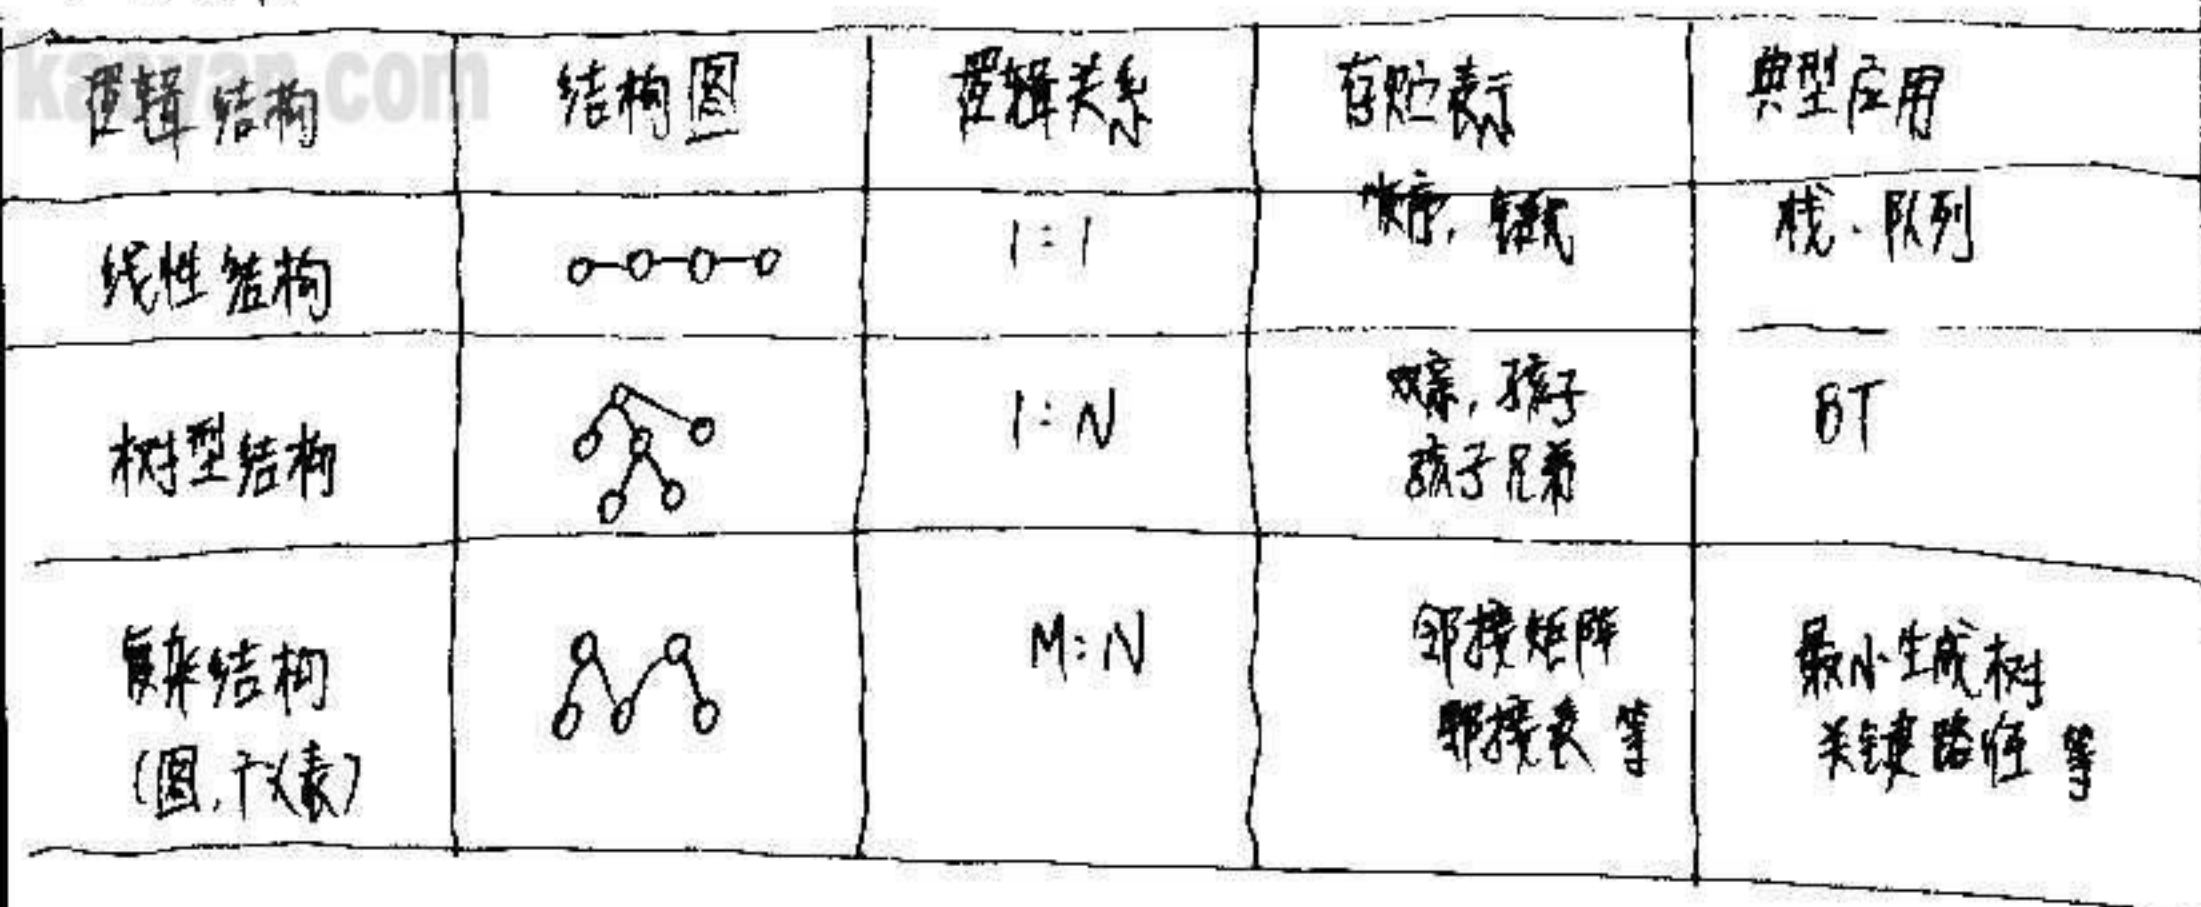 逻辑结构
结构图
逻辑关系
存贮表示
典型应用
线性结构
1:1
顺序, 链式
栈、队列
树型结构
1:N
双亲, 孩子
孩子兄弟
BT
复杂结构
(图, 广义表)
M:N
邻接矩阵
邻接表 等
最小生成树
关键路径 等